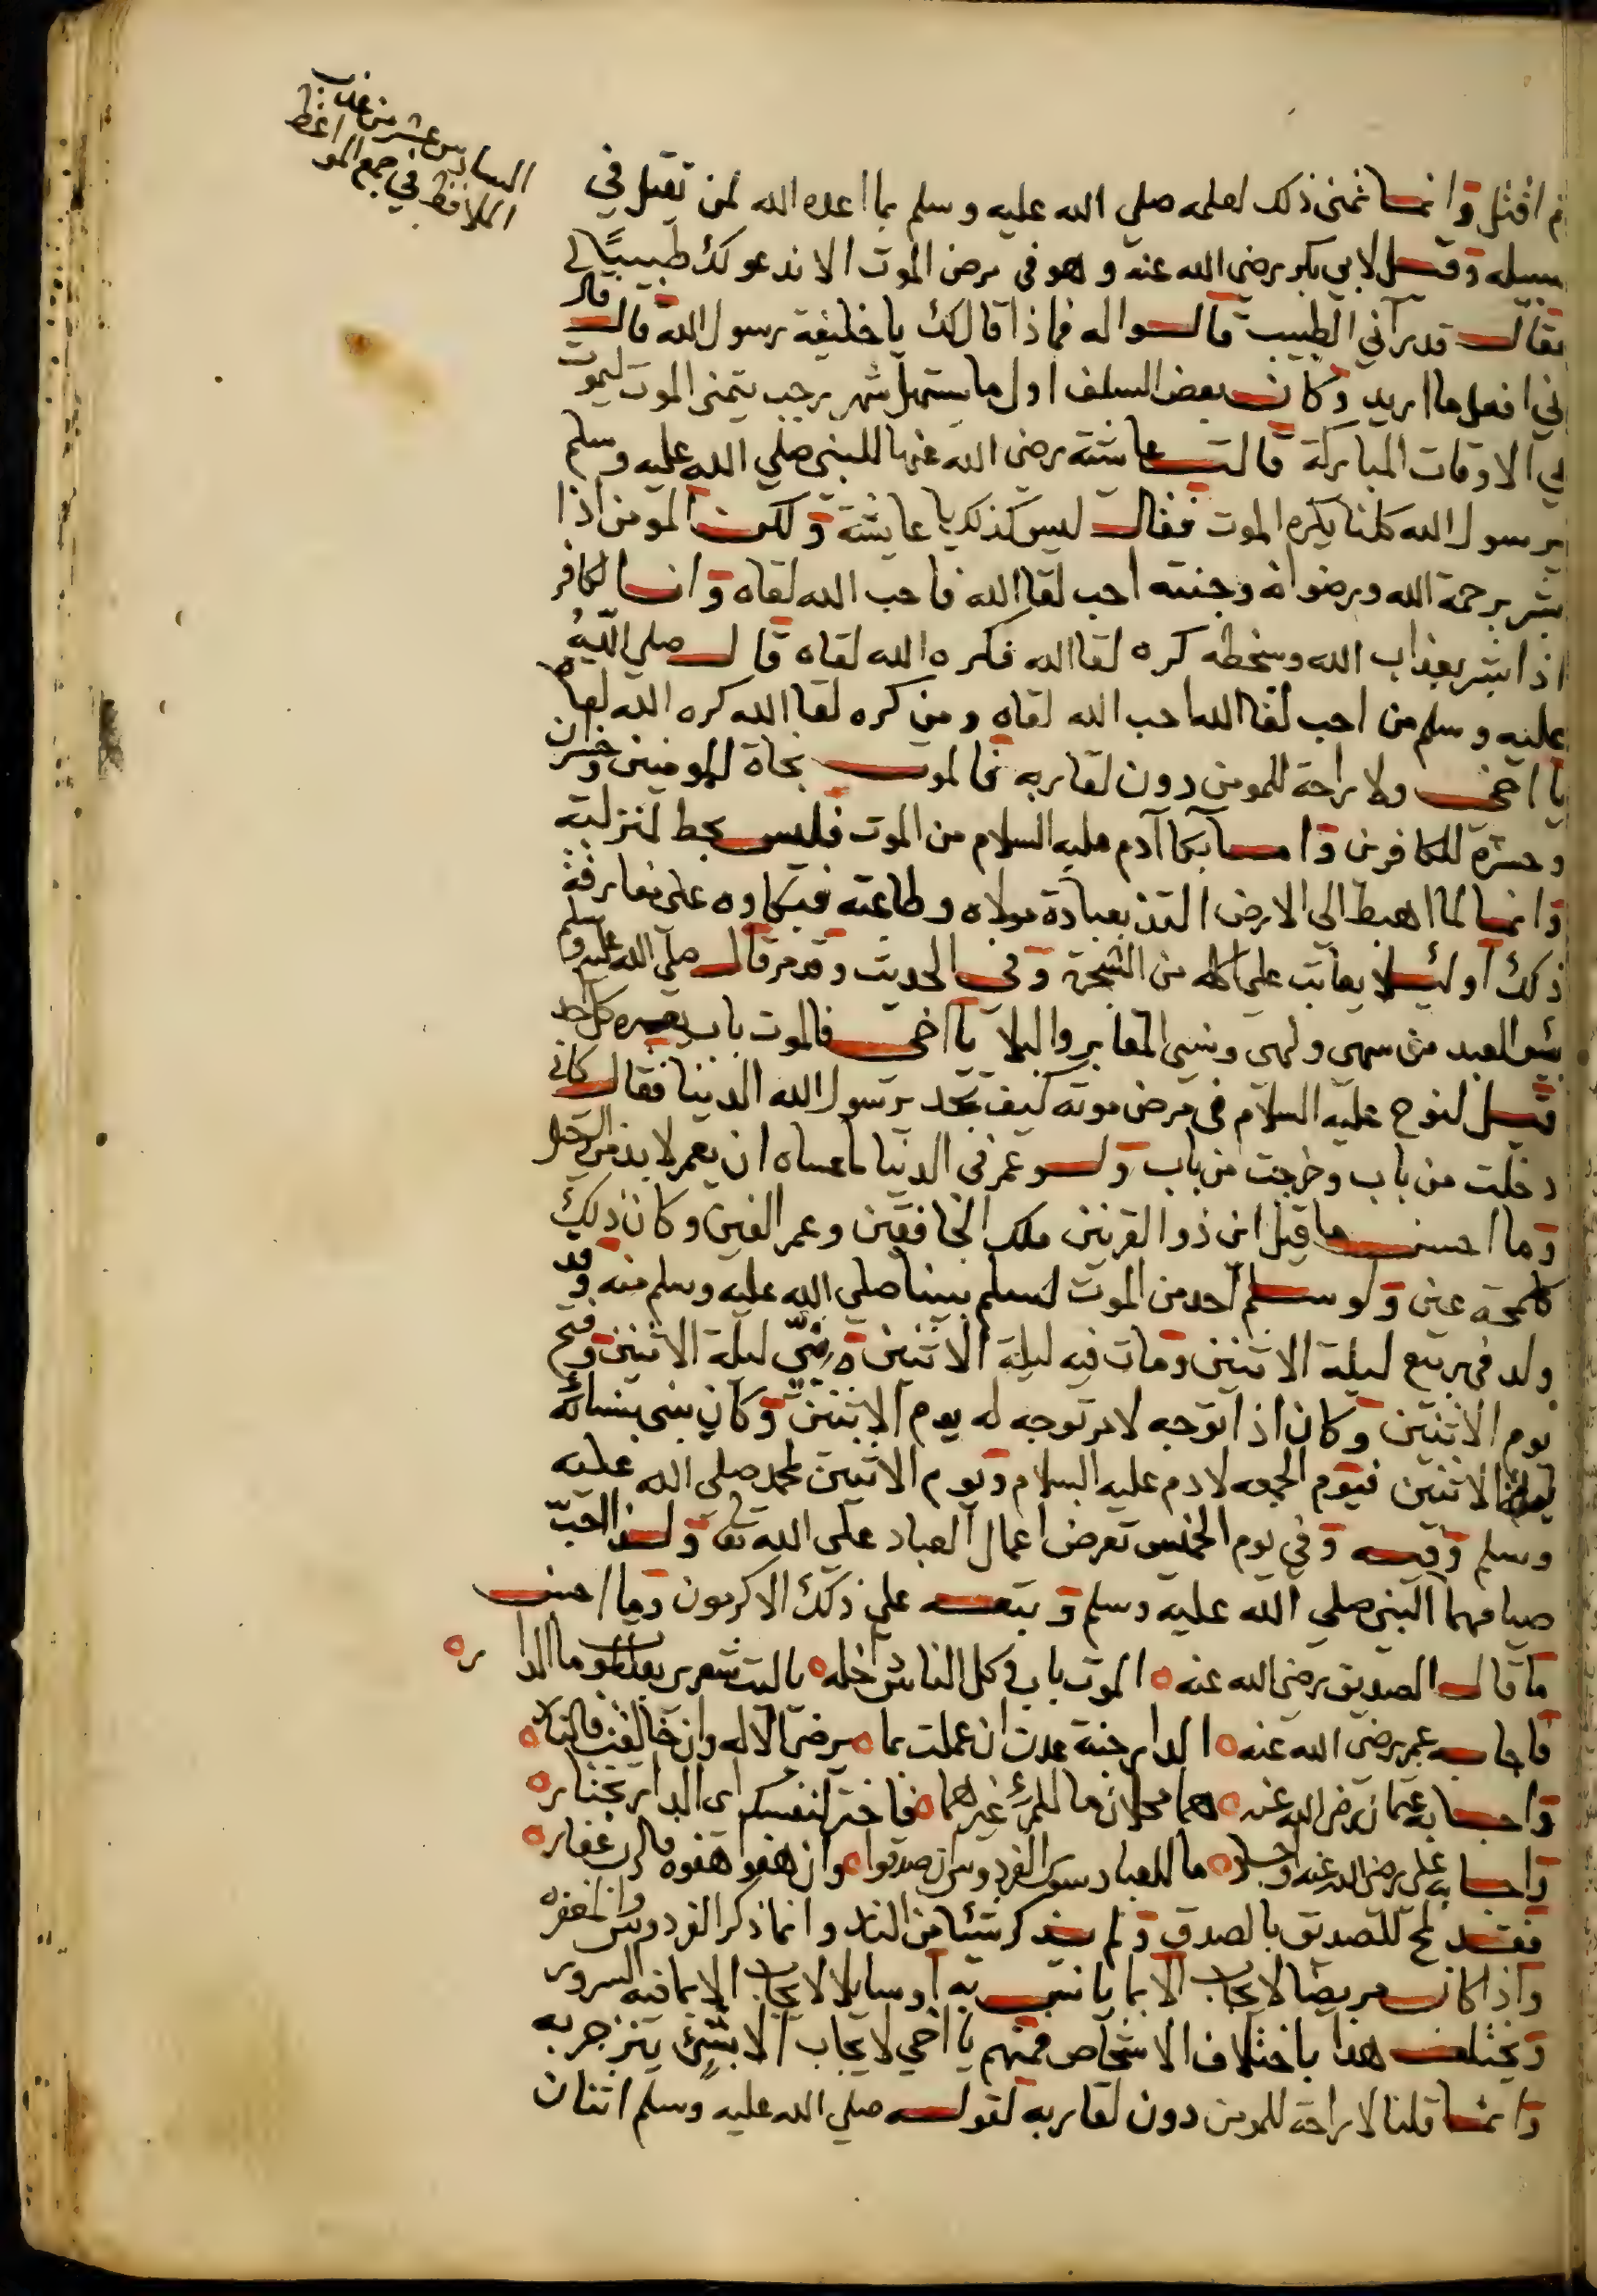 السادس عشر من عذب
الالافظ في جمع المواعظ
ثم اقتل وانما تمنى ذلك لعلمه صلى الله عليه وسلم بما اعده الله لمن يقتل في
سبيله وقيل لابي بكر رضي الله عنه وهو في مرض الموت الا ندعو لك طبيبًا
فقال قد رآني الطبيب قالوا له فماذا قال لك يا خليفة رسول الله قال قال
اني افعل ما اريد وكان بعض السلف اول ما يستهل شهر رجب يتمنى الموت ليموت
في الاوقات المباركة قالت عايشة رضي الله عنها للنبي صلى الله عليه وسلم
يرسول الله كلنا يكره الموت فقال ليس كذلك يا عايشة ولكن المومن اذا
بشر برحمة الله ورضوانه وجنته احب لقا الله فاحب الله لقاه وان الكافر
اذا بشر بعذاب الله وسخطه كره لقا الله فكره الله لقاه قال صلى الله
عليه وسلم من احب لقا الله احب الله لقاه ومن كره لقا الله كره الله لقاه
يا اخي ولا راحة للمومن دون لقا ربه فالموت نجاة للمومنين وخسران
وحسرة للكافرين واما بكا آدم عليه السلام من الموت فليس يحط لمنزلته
وانما لما اهبط الى الارض التذ بعبادة مولاه وطاعته فبكاوه على مفارقة
ذلك او ليلا يعاتب على اكله من الشجرة وفي الحديث وقد مر قال صلى الله عليه وسلم
بئس العبد من سهى ولهى ونسي المقابر والبلا يا اخي فالموت باب يعبره كل احد
قيل لنوح عليه السلام في مرض موته كيف تجد يرسول الله الدنيا فقال كاني
دخلت من باب وخرجت من باب ولو عمر في الدنيا ما عساه ان يعمر لا بد من الرحيل
وما احسن ما قيل ان ذو القرنين ملك الخافقين وعمر الفين وكان ذلك
كلمحة عين ولو سلم احد من الموت لسلم نبينا صلى الله عليه وسلم منه وقد
ولد في ربيع ليلة الاثنين ومات فيه ليلة الاثنين ونبي ليلة الاثنين وفتح
يوم الاثنين وكان اذا توجه لامر توجه له يوم الاثنين وكان يبني بنسائه
الاثنين فيوم الجمعه لادم عليه السلام ويوم الاثنين لمحمد صلى الله عليه
وسلم وفيه وفي يوم الخميس تعرض اعمال العباد على الله تعا ولذا احب
صيامهما النبي صلى الله عليه وسلم وتبعه على ذلك الاكرمون وما احسن
ما قال الصديق رضي الله عنه الموت باب وكل الناس داخله يا ليت شعري بعد الموت ما الدار
فاجابه عمر رضي الله عنه الدار جنة عدن ان عملت بما يرضي الاله وان خالفت فالنار
واجابه عثمان رضي الله عنه هما محلان ما للمرء غيرهما فاختر لنفسك اي الدار تختار
واجابه علي رضي الله عنه ما للعباد سوى الفردوس ان صدقوا وان هفوا هفوة فالرب غفار
فقد لمح للصديق بالصدق ولم يذكر شيئا من النار وانما ذكر الفردوس والمغفرة
واذا كان مريضا لا يجاب الا بما يانس به او سايلا لا يجاب الا بما فيه السرور
ويختلف هذا باختلاف الاشخاص فمنهم يا اخي لا يجاب الا بشئ ينزجر به
وانما قلنا لا راحة للمومن دون لقا ربه لقوله صلى الله عليه وسلم اثنان